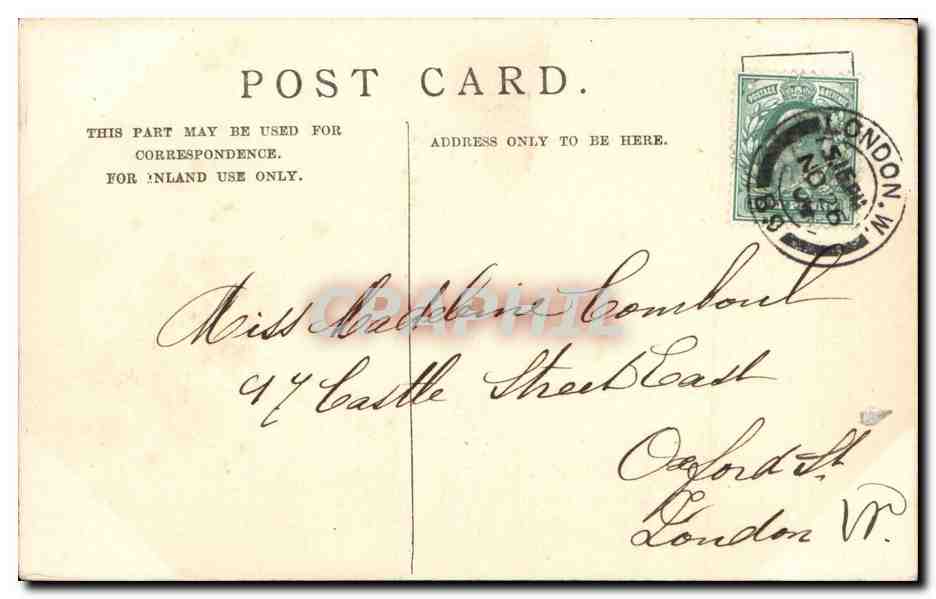 POST CARD.
THIS PART MAY BE USED FOR
CORRESPONDENCE.
FOR INLAND USE ONLY.
ADDRESS ONLY TO BE HERE.
POSTAGE
LONDON. W.
NO 26
Miss Madeleine Comboul
97 Castle Street East
Oxford St
London W.
CPAPHIL